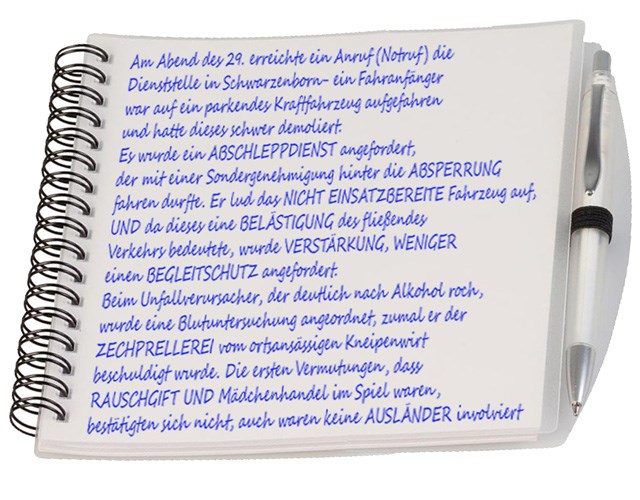 Am Abend des 29. erreichte ein Anruf (Notruf) die
Dienststelle in Schwarzenborn- ein Fahranfänger
war auf ein parkendes Kraftfahrzeug aufgefahren
und hatte dieses schwer demoliert.
Es wurde ein ABSCHLEPPDIENST angefordert,
der mit einer Sondergenehmigung hinter die ABSPERRUNG
fahren durfte. Er lud das NICHT EINSATZBEREITE Fahrzeug auf,
UND da dieses eine BELÄSTIGUNG des fließendes
Verkehrs bedeutete, wurde VERSTÄRKUNG, WENIGER
einen BEGLEITSCHUTZ angefordert.
Beim Unfallverursacher, der deutlich nach Alkohol roch,
wurde eine Blutuntersuchung angeordnet, zumal er der
ZECHPRELLEREI vom ortsansässigen Kneipenwirt
beschuldigt wurde. Die ersten Vermutungen, dass
RAUSCHGIFT UND Mädchenhandel im Spiel waren,
bestätigten sich nicht, auch waren keine AUSLÄNDER involviert